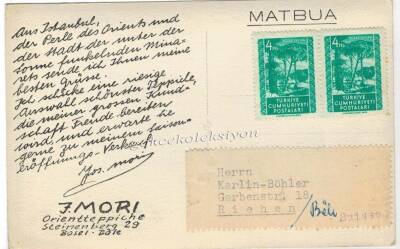 MATBUA
Aus Istanbul,
der Perle des Orients und
der Stadt der unter der
Sonne funkelnden Mina-
rets sende ich Ihnen meine
besten Grüsse.
Ich schicke eine riesige
Auswahl schönster Teppiche,
die meiner grossen Kund-
schaft Freude bereiten
wird, und erwarte Sie
gerne zu meinem Saison-
eröffnungs-Verkauf.
Jos. Mori
J. MORI
Orientteppiche
Steinenberg 29
Basel - Bâle
4
4
TÜRKİYE
CUMHURİYETİ
POSTALARI
TÜRKİYE
CUMHURİYETİ
POSTALARI
Herrn
Karlin-Böhler
Gerbenstr. 18
Riehen /Bâle